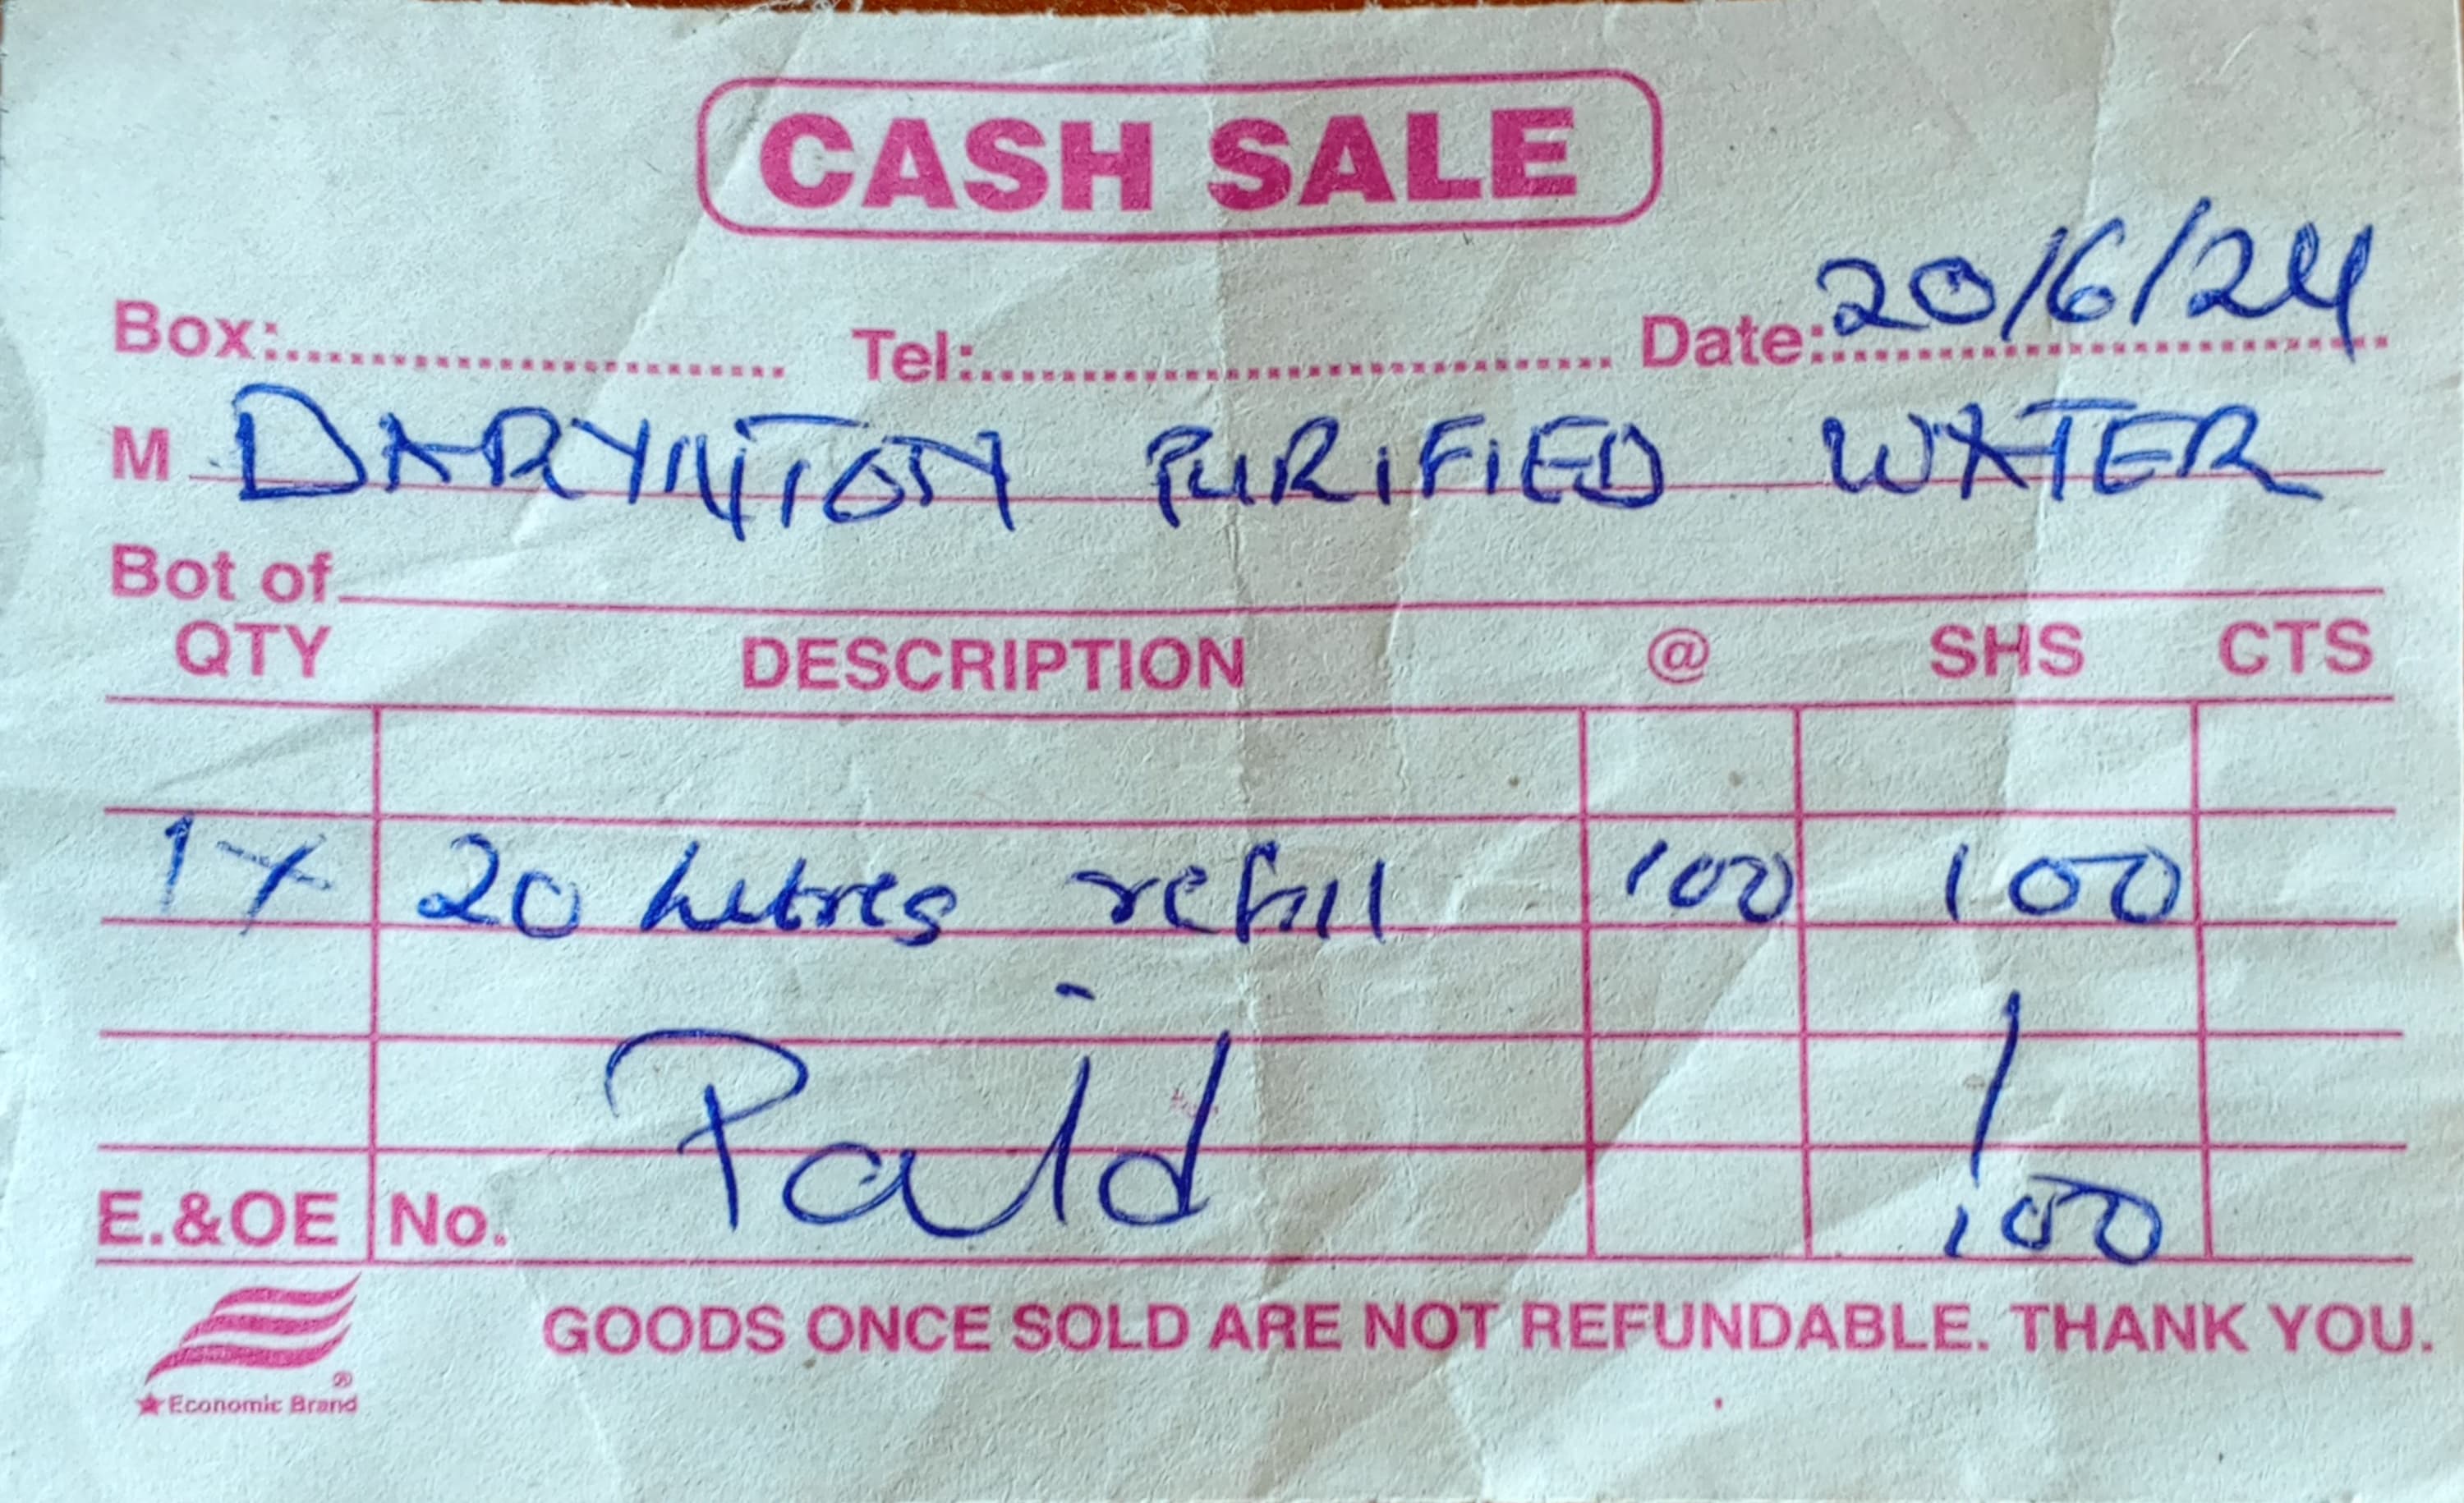 CASH SALE
Box: Tel: Date: 20/6/24
M DARYNTON PURIFIED WATER
Bot of
QTY DESCRIPTION @ SHS CTS
1 x 20 Litres refill 100 100
Paid 100
E.&OE No.
GOODS ONCE SOLD ARE NOT REFUNDABLE. THANK YOU.
® Economic Brand